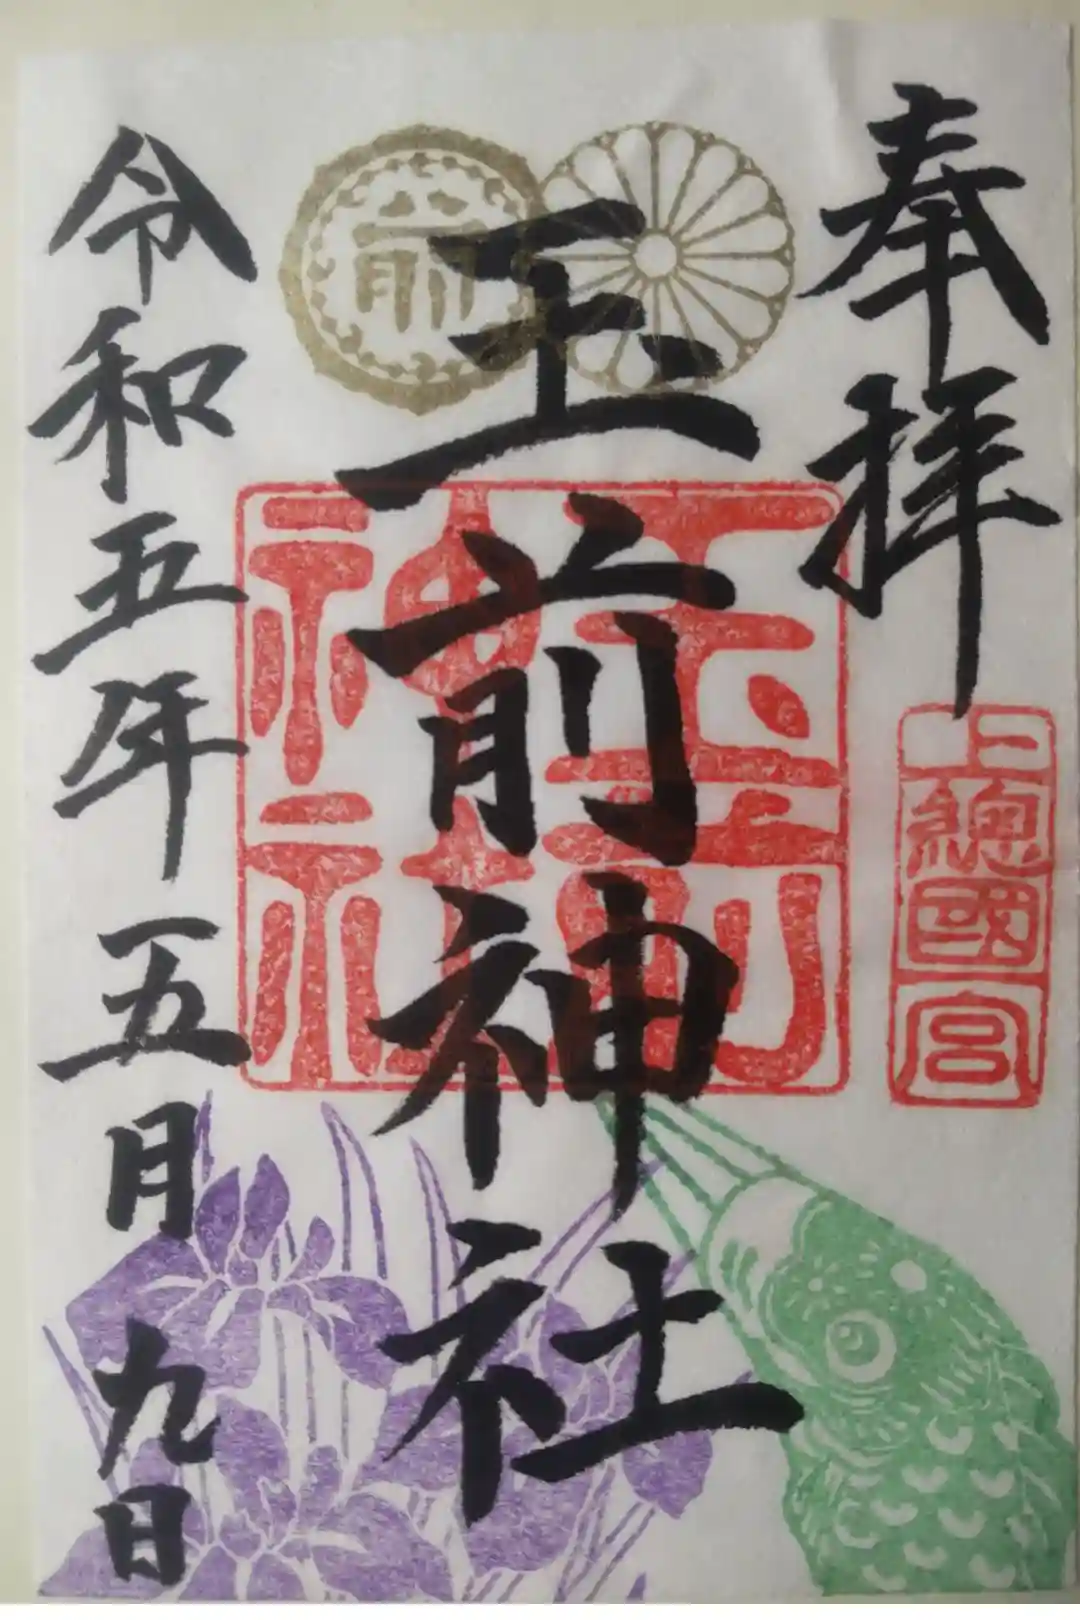 奉拝
上總國宮
玉前神社
玉前神社
前
令和五年五月九日